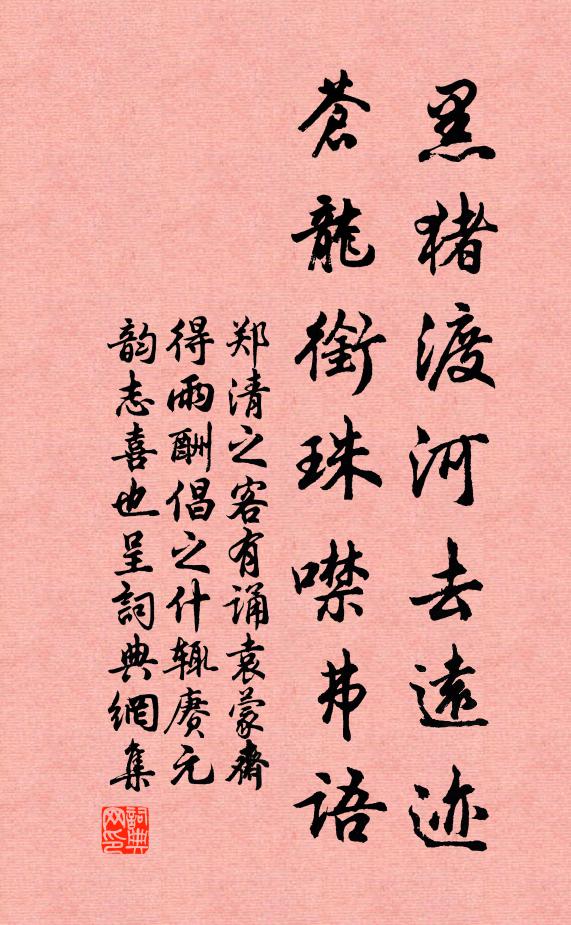 黑猪渡河去遠迹
蒼龍銜珠噤弗語
郑清之客有诵袁蒙齋
得雨酬倡之什辄赓元
韵志喜也呈詞典網集
詞典
网印